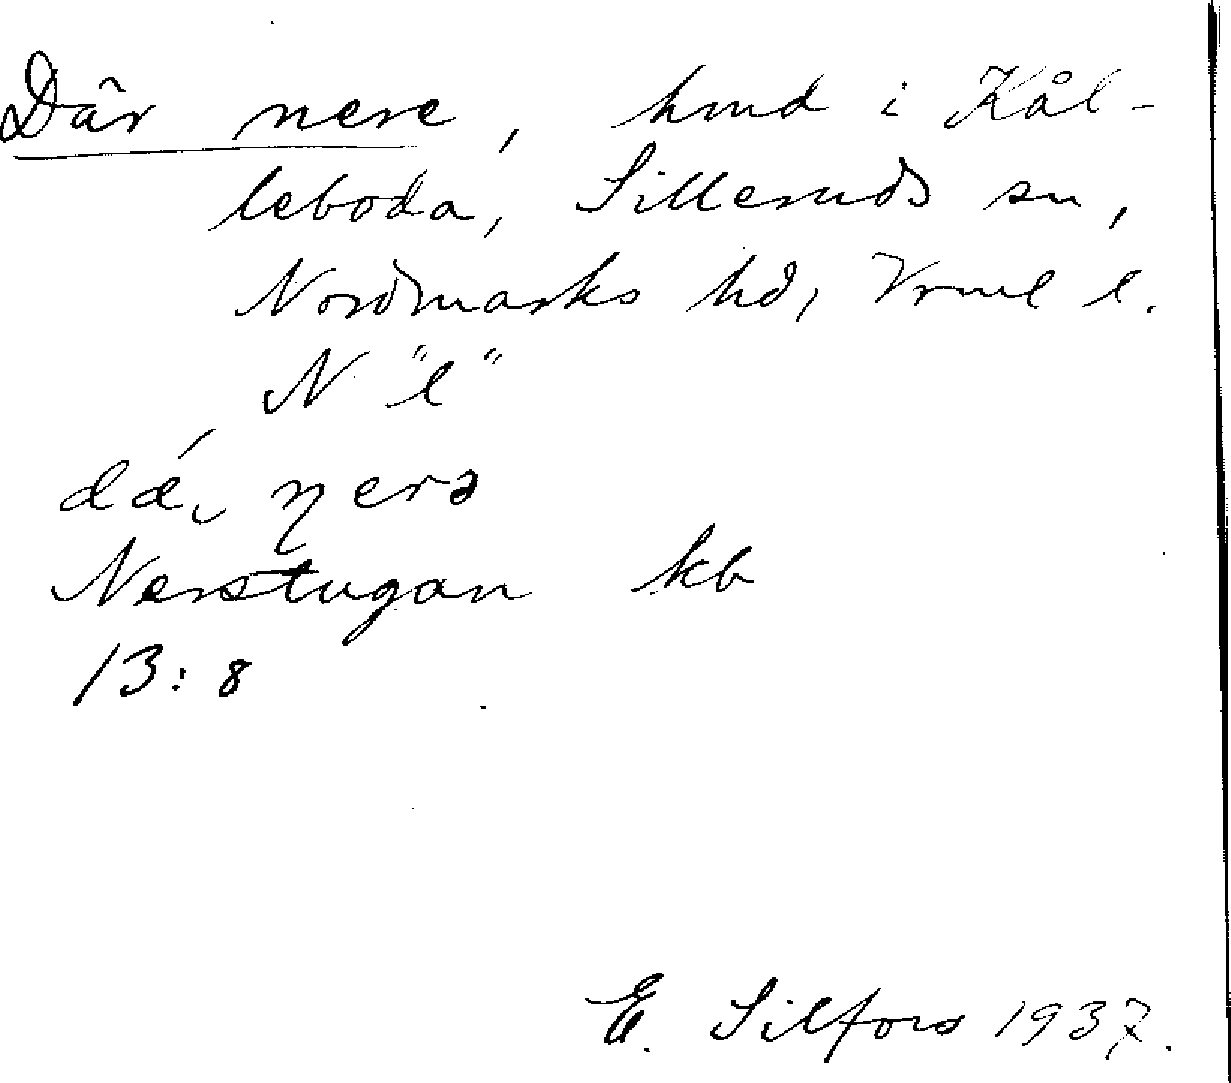 Där nere, hmd i Kål-
leboda, Silleruds sn,
Nordmarks hd, Vrml l.
N "l"
Nerstugan kb
13:8
E. Silfors 1937.